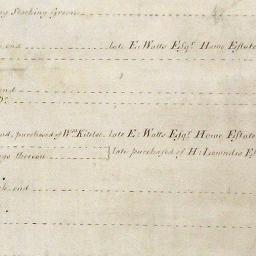 Stocking Green
end late E: Watts Esqr. Home Estate
end
Do.
nd, purchased of Wm. Kitelee late E: Watts Esqr. Home Estate
age thereon late purchased of H: Lowndes Es
end